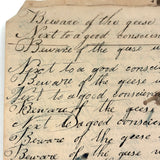 Beware of the geese
Next to a good conscience
Beware of the geese w
Next to a good conscience
Beware of the geese
Next to a good conscien
Beware of the geese
Next to a good conscien
Beware of the geese